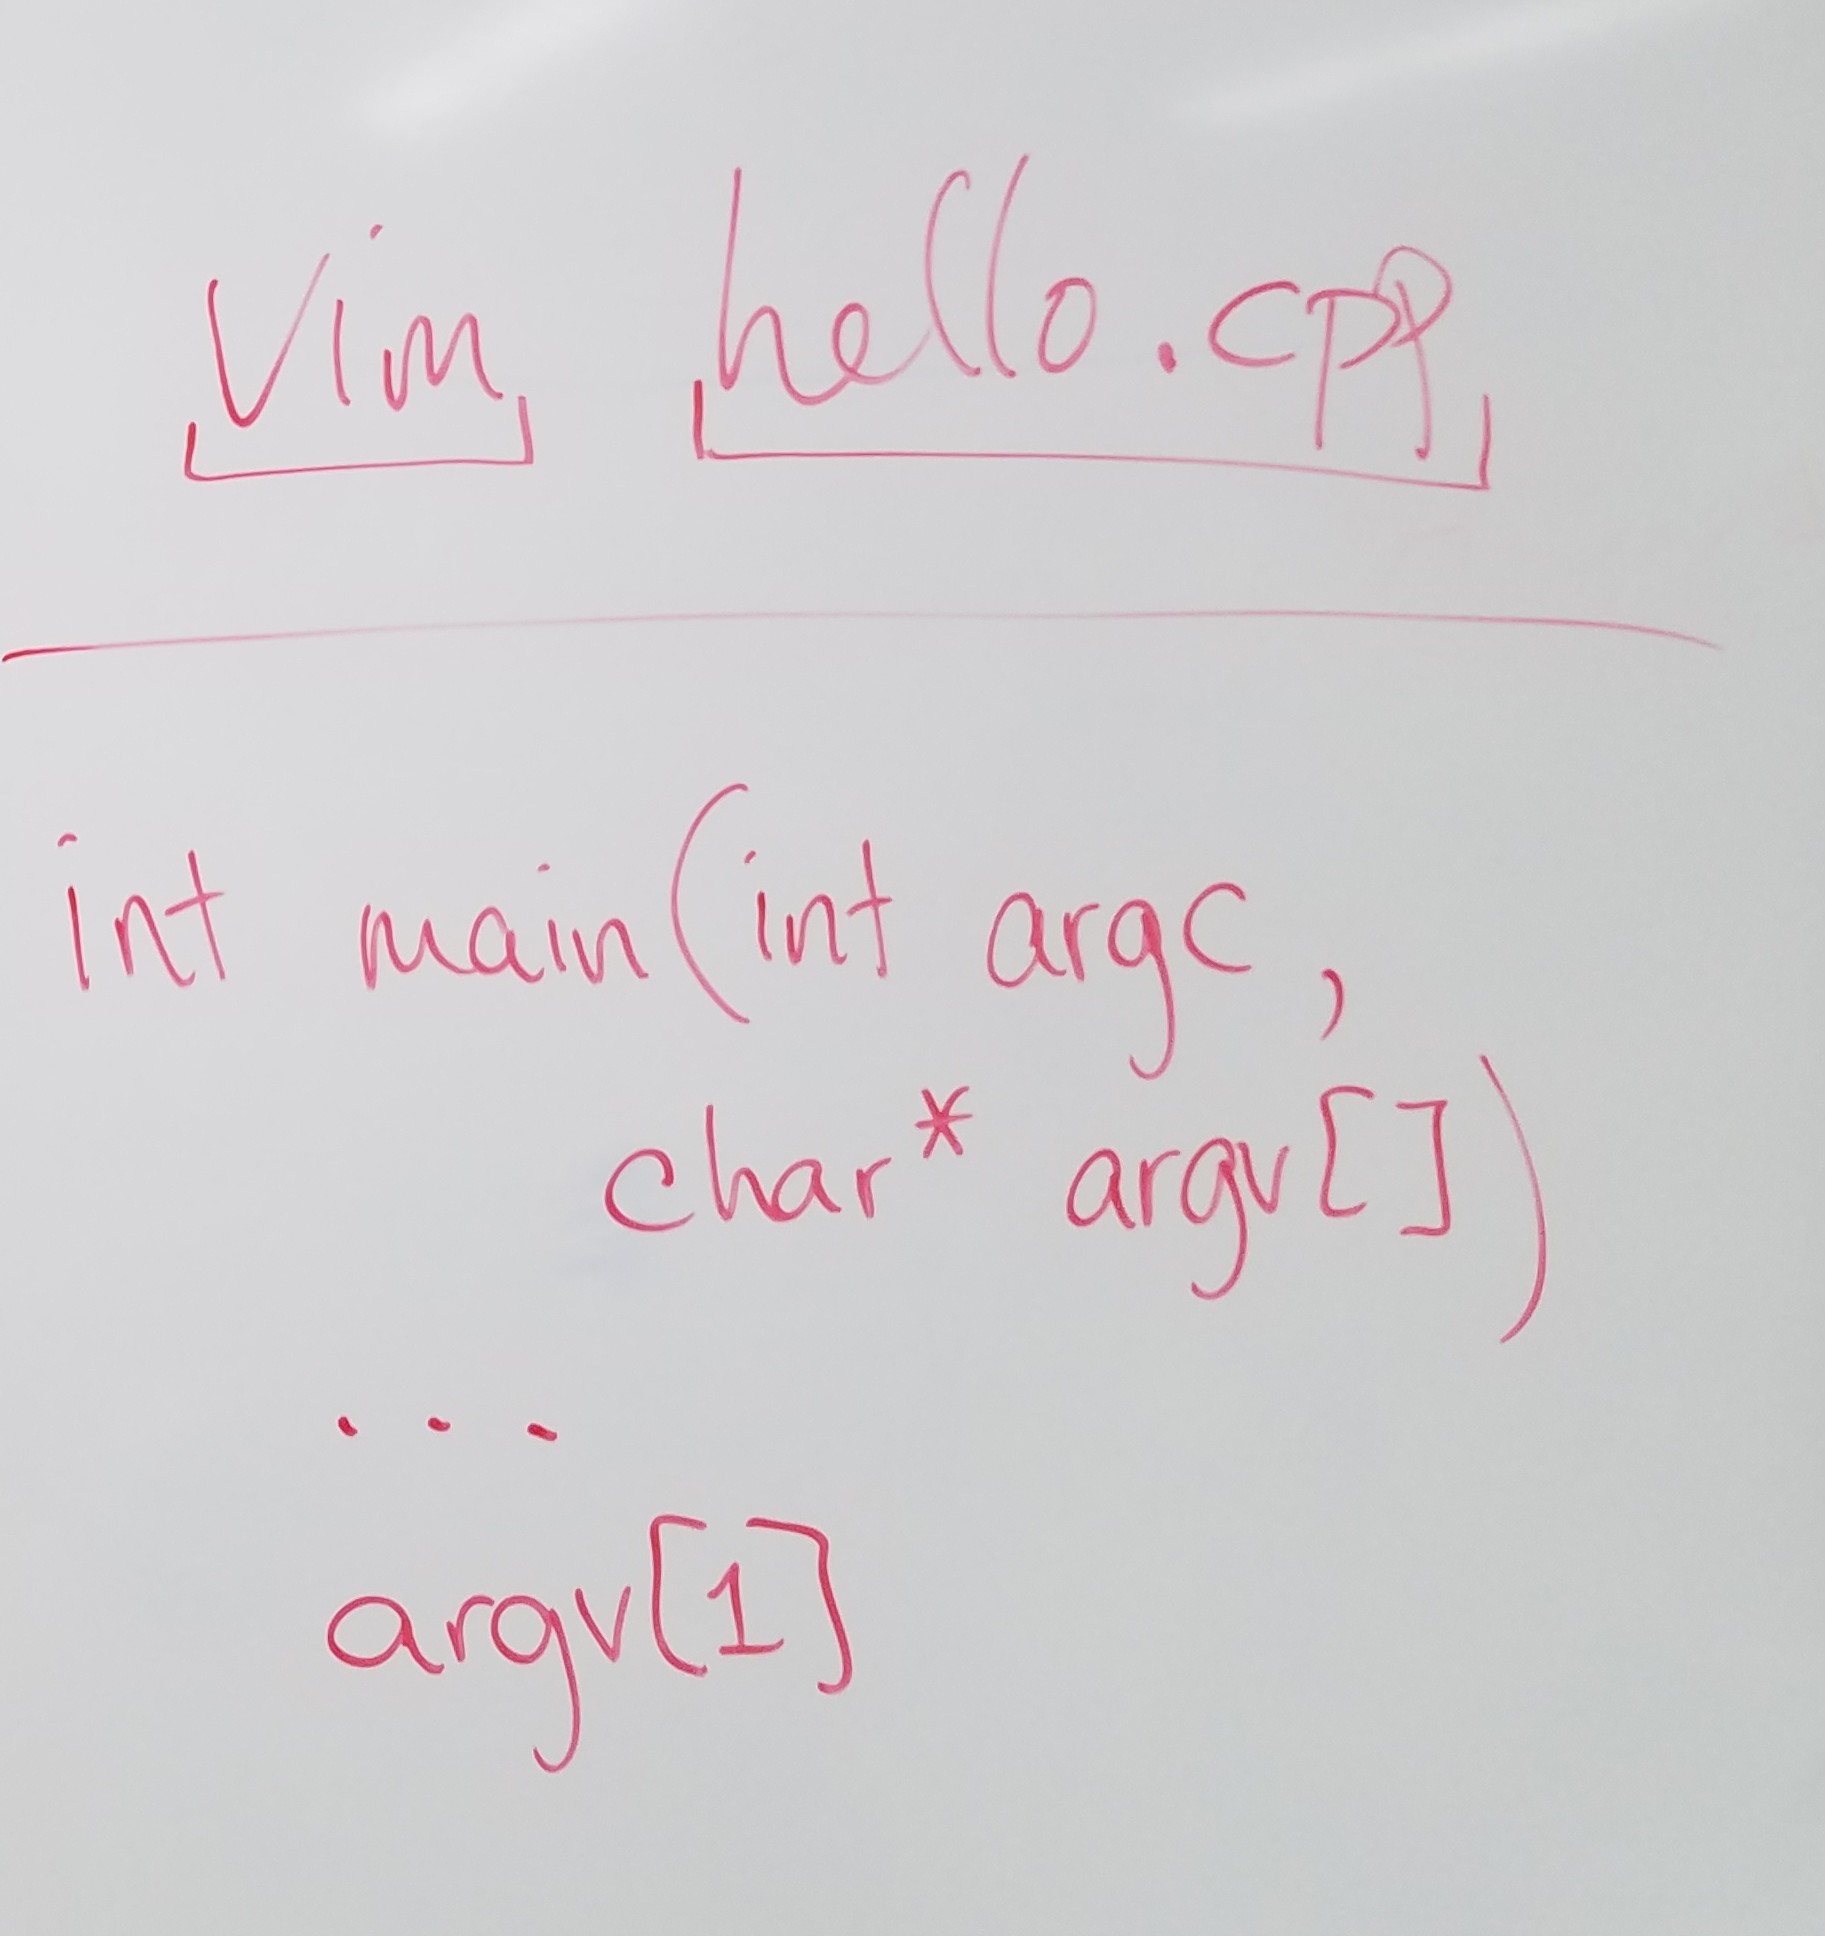 Vim hello.cpp
int main(int argc,
char* argv[])
...
argv[1]